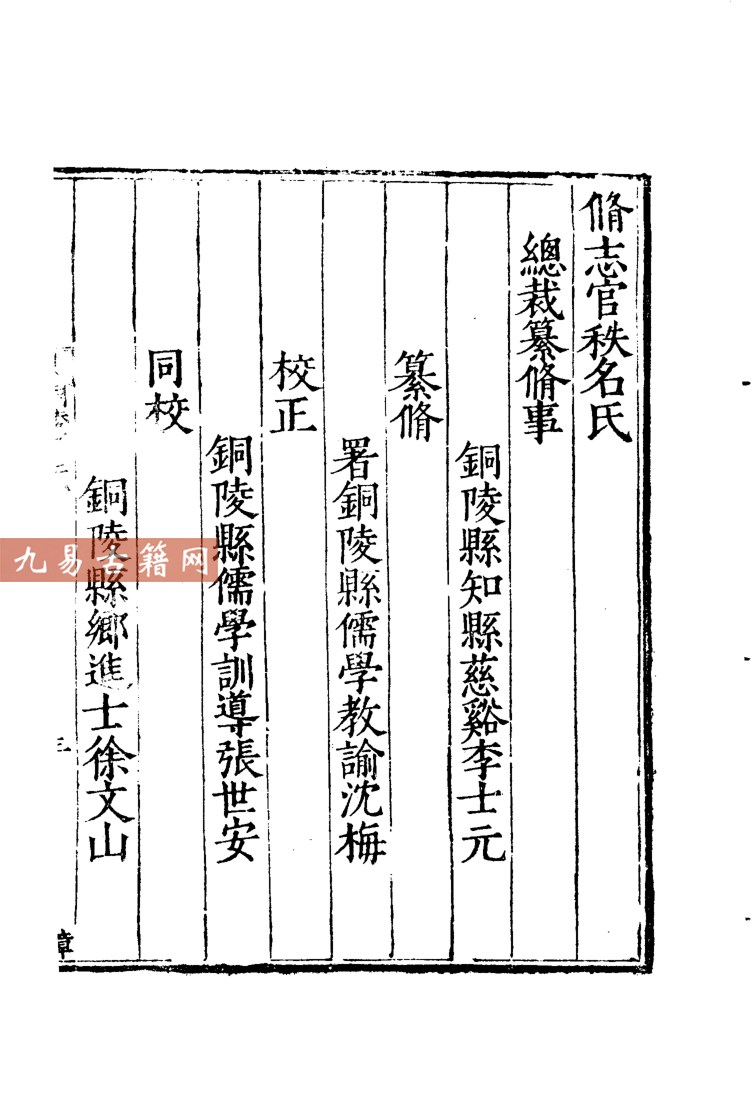 脩志官秩名氏
總裁纂脩事
銅陵縣知縣慈谿李士元
纂脩
署銅陵縣儒學教諭沈梅
校正
銅陵縣儒學訓導張世安
同校
銅陵縣鄉進士徐文山
三
章
九易古籍网